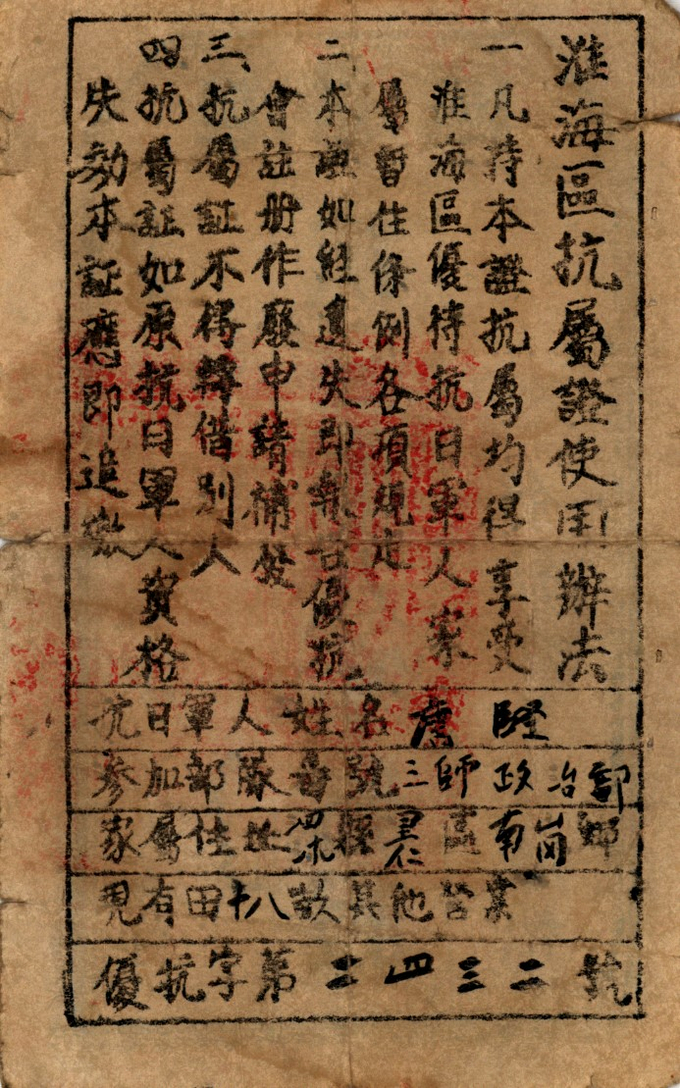 淮海區抗屬證使用辦法
一、凡持本證抗屬均得享受
淮海區優待抗日軍人家
屬暫住條例各項規定
二、本證如經遺失即報告優抗
會註册作廢申請補發
三、抗屬証不得轉借別人
四、抗屬証如原抗日軍人資格
失効本証應即追繳
抗日軍人姓名
參加部隊番號三師政治部
家屬住址沭縣里仁區南崗鄉
現有田十八畝其他營業
優抗字第二四三二號